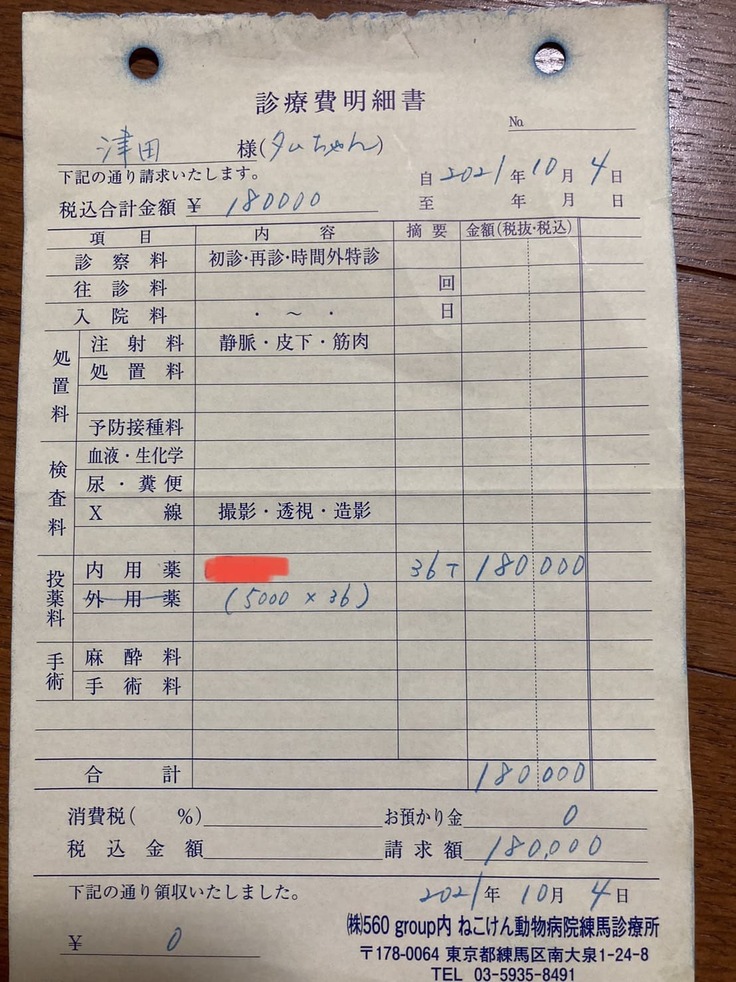 診療費明細書
No.
津田 様(タムちゃん)
下記の通り請求いたします。
自 2021年10月4日
税込合計金額 ¥ 180000
至 年 月 日
項目 内容 摘要 金額(税抜・税込)
診察料 初診・再診・時間外特診
往診料 回
入院料 ・ ～ ・ 日
処置料
注射料 静脈・皮下・筋肉
処置料
予防接種料
検査料
血液・生化学
尿・糞便
X線 撮影・透視・造影
投薬料
内用薬 36T 180000
外用薬 (5000×36)
手術
麻酔料
手術料
合計 180000
消費税( %) お預かり金 0
税込金額 請求額 180,000
下記の通り領収いたしました。 2021年10月4日
¥ 0
㈱560 group内 ねこけん動物病院練馬診療所
〒178-0064 東京都練馬区南大泉1-24-8
TEL 03-5935-8491